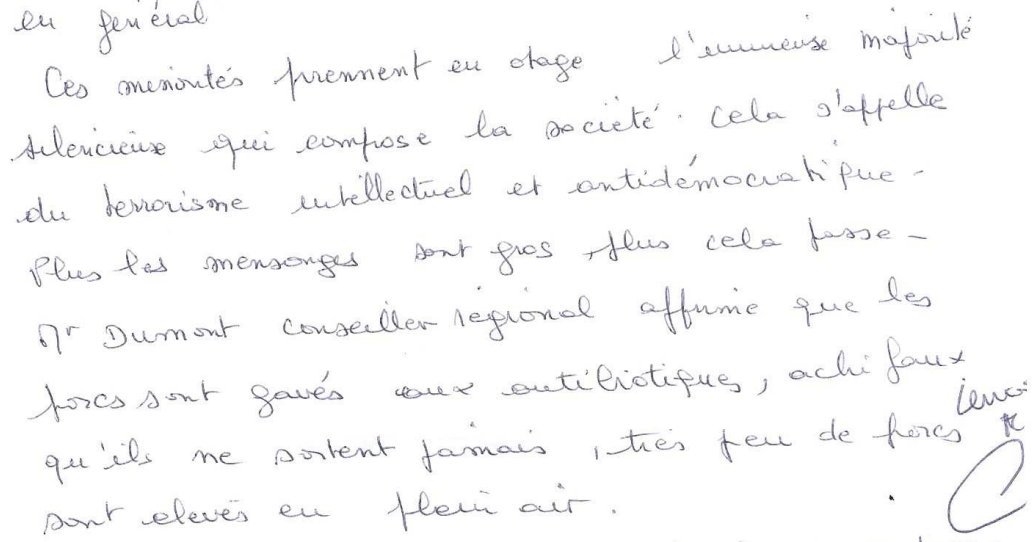 en général
Ces minorités prennent en otage l'immense majorité
silencieuse qui compose la société. Cela s'appelle
du terrorisme intellectuel et antidémocratique -
Plus les mensonges sont gros, plus cela passe -
Mr Dumont conseiller régional affirme que les
porcs sont gavés aux antibiotiques, archi faux
qu'ils ne sortent jamais, très peu de porcs
sont elevés en plein air.